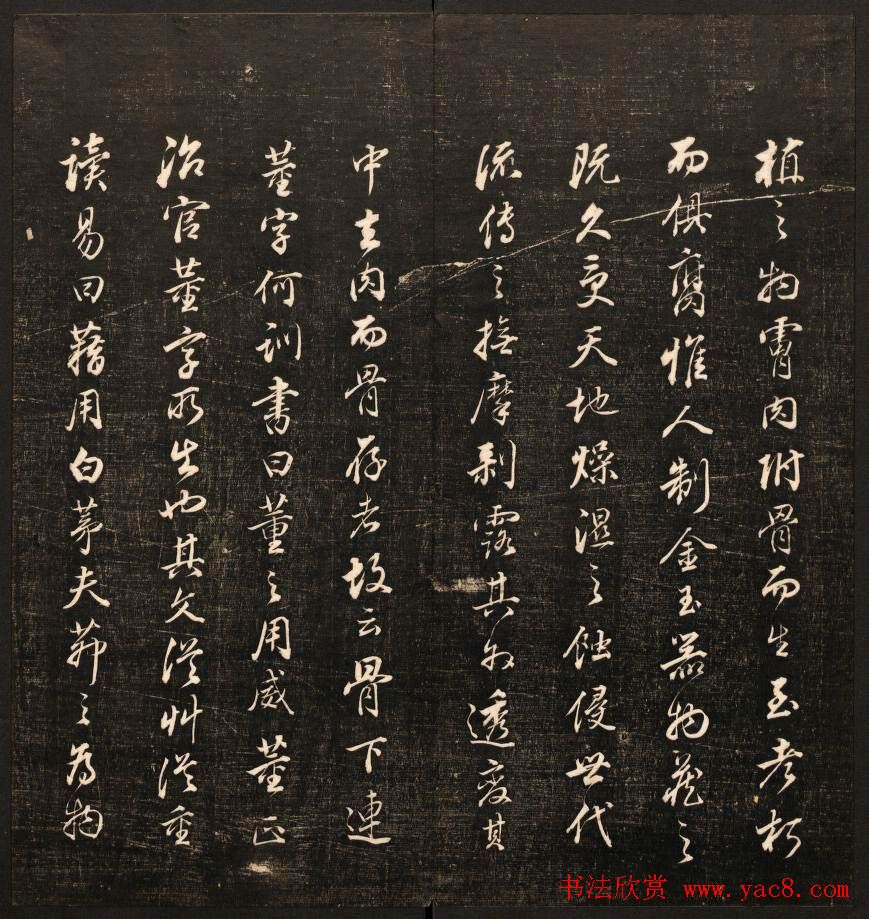 植之物胥肉附骨而生至老朽
而俱腐惟人制金玉器物藏之
既久更天地燥濕之蝕侵世代
流傳之撫摩剥露其外透變其
中去肉而骨存者故云骨下連
董字何訓書曰董之用威董正
治官董字所出也其文從艸從重
讀易曰藉用白茅夫茅之為物
书法欣赏 www.yac8.com